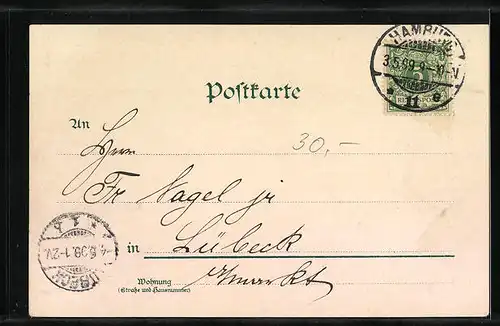 HAMBURG
3.5.99.9-10.V.
* 11 e
REICHSPOST
5
Postkarte
An
30,-
Herrn
Fr Nagel jr
in Lübeck
Markt
Wohnung
(Straße und Hausnummer)
LÜBECK
1-2V.
* 1 b